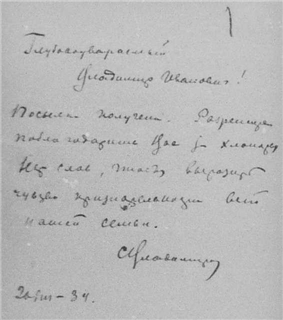 Глубокоуважаемый
Владимир Иванович!
Посылки получены. Разрешите
поблагодарить Вас за хлопоты
Нет слов, чтоб выразить
чувство признательности всей
нашей семьи.
34.